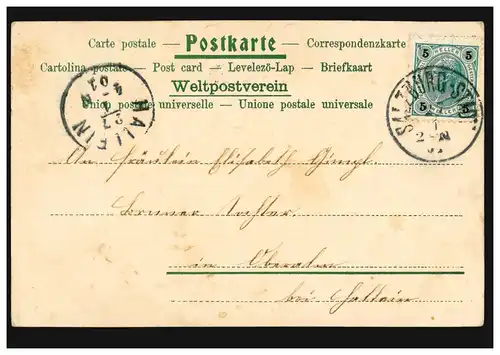 Carte postale — Postkarte — Correspondenzkarte
Cartolina postale — Post card — Levelező-Lap — Briefkaart
Weltpostverein
Union postale universelle — Unione postale universale
5 HELLER 5
5 5
SALZBURG STADT
HALLEIN
An Fräulein Elisabeth Gimpl
in Oberalm
bei Hallein